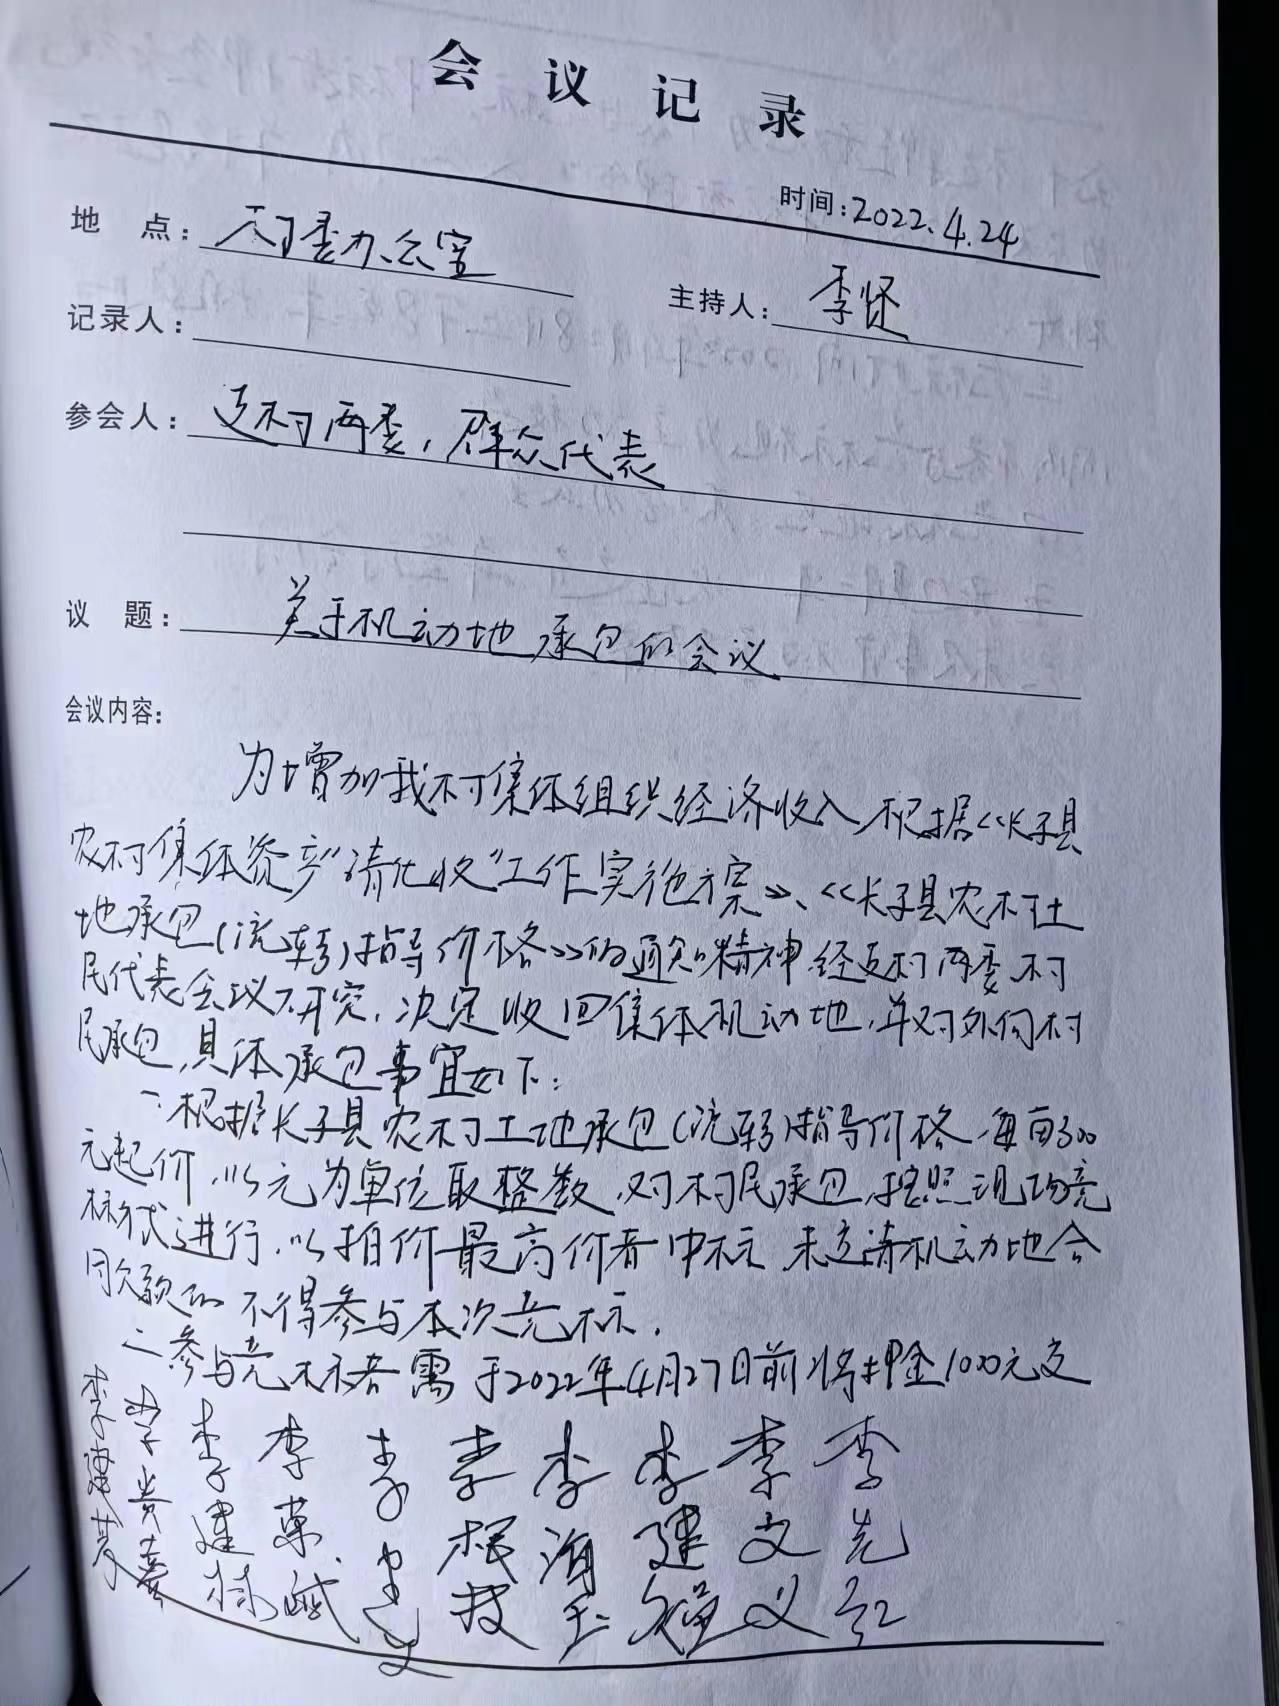 会议记录
时间:2022.4.24
地 点: 村委办公室
主持人: 李贤
记录人:
参会人: 支村两委,群众代表
议 题: 关于机动地承包的会议
会议内容:
为增加我村集体组织经济收入,根据《长子县
农村集体资产“清化收”工作实施方案》、《长子县农村土
地承包(流转)指导价格》的通知精神,经支村两委、村
民代表会议研究,决定收回集体机动地,并对外向村
民承包,具体承包事宜如下:
一、根据长子县农村土地承包(流转)指导价格,每亩300
元起价,以元为单位取整数,对村民承包,按照现场竞
标形式进行,以拍价最高价者中标,未交清机动地合
同欠款的不得参与本次竞标。
二、参与竞标者需于2022年4月27日前将押金1000元交
李建芳 李贵春 李建林 李 李 李根技 李海玉 李建 李文义 李先红